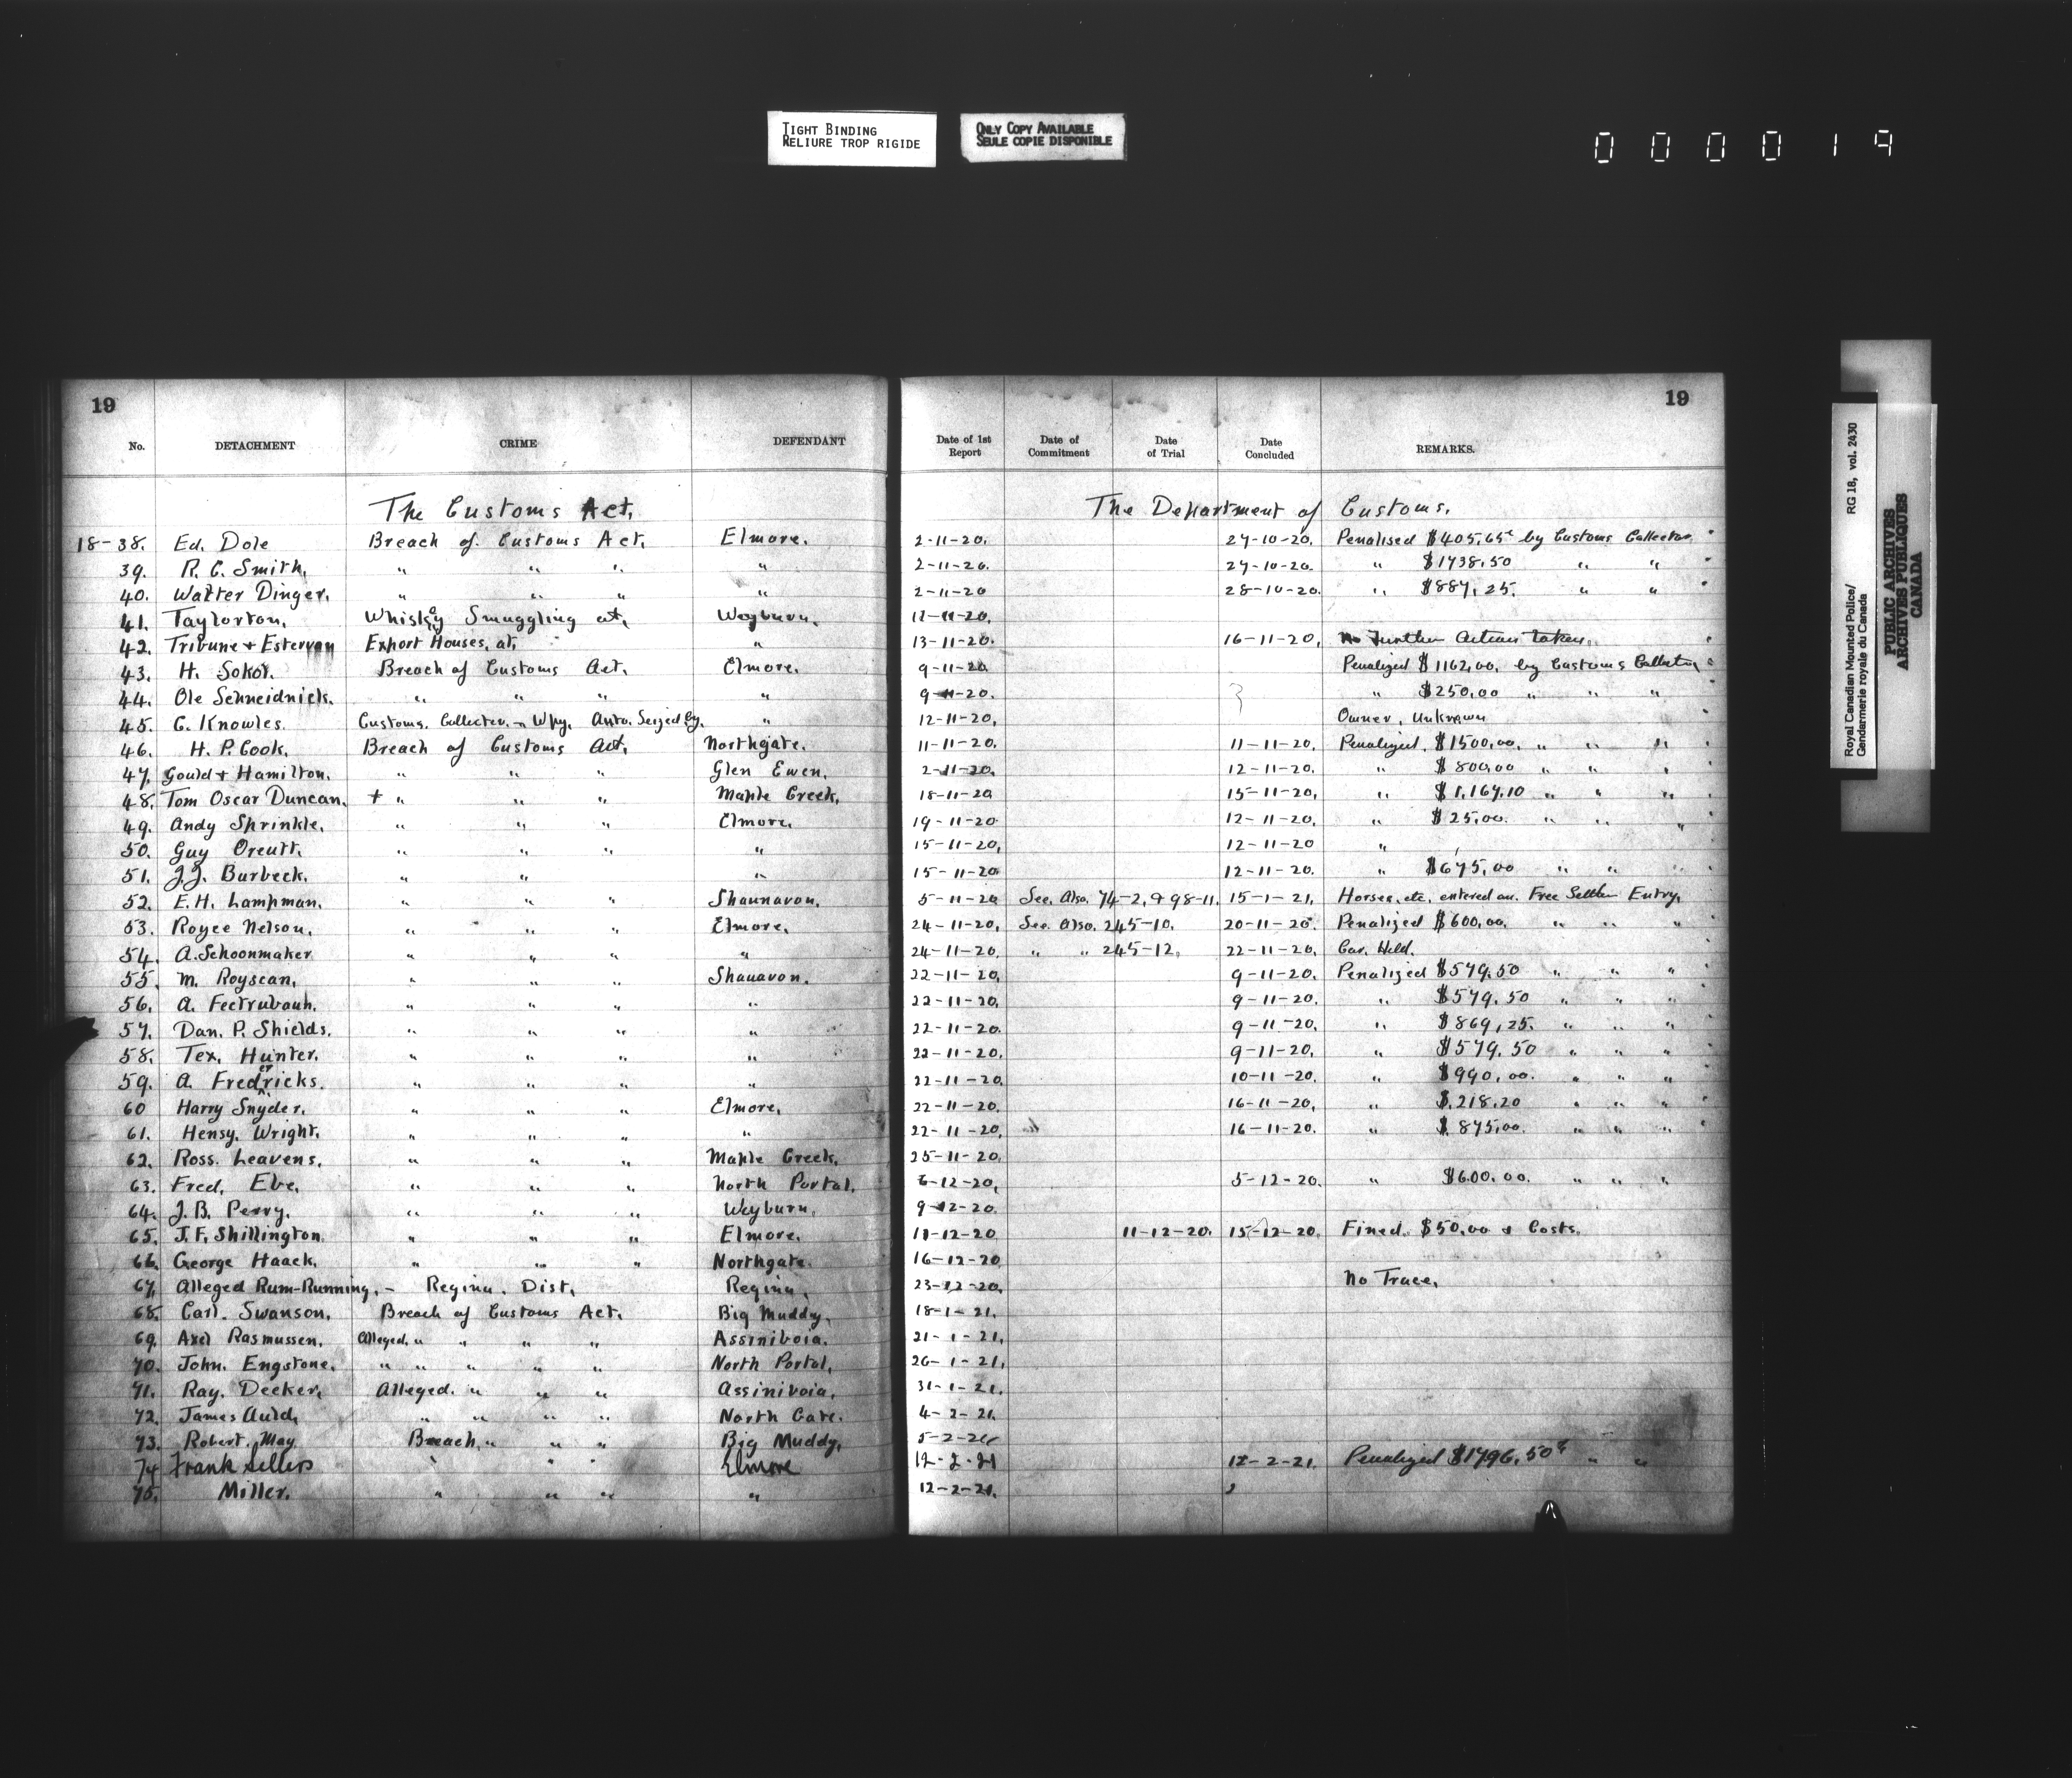 TIGHT BINDING
RELIURE TROP RIGIDE
ONLY COPY AVAILABLE
SEULE COPIE DISPONIBLE
000019
19 19
No. DETACHMENT CRIME DEFENDANT Date of 1st Report Date of Commitment Date of Trial Date Concluded REMARKS.
The Customs Act, The Department of Customs.
18-38. Ed. Dole Breach of Customs Act, Elmore. 2-11-20. 27-10-20. Penalised $405.65c by Customs Collector
39. R. C. Smith, " " " " 2-11-20. 27-10-20. " $1738.50 " "
40. Walter Dinger. " " " " 2-11-20 28-10-20. " $887.25. " "
41. Taylorton, Whisky Smuggling at, Weyburn. 12-11-20.
42. Tribune + Estervan Export Houses, at, " 13-11-20. 16-11-20, No Further Action taken.
43. H. Sokol. Breach of Customs Act. Elmore. 9-11-20 Penalized $1162.00. by Customs Collector
44. Ole Schneidnick. " " " " 9-11-20. " $250.00 " " "
45. C. Knowles. Customs. Collector. - Wpg. Auto. Seized by. " 12-11-20, Owner, Unknown
46. H. P. Cook. Breach of Customs Act, Northgate. 11-11-20. 11-11-20. Penalized, $1500.00. " " "
47. Gould + Hamilton. " " " Glen Ewen. 2-11-20. 12-11-20. " $800.00 " " "
48. Tom Oscar Duncan. + " " " Maple Creek, 18-11-20 15-11-20, " $1,167.10 " " "
49. Andy Sprinkle. " " " Elmore. 19-11-20 12-11-20. " $25.00. " " "
50. Guy Orcutt. " " " " 15-11-20, 12-11-20 "
51. J.J. Burbeck. " " " 15-11-20 12-11-20. " $675.00 " " "
52. E.H. Lampman. " " " Shaunavon. 5-11-20 See. Also. 74-2, & 98-11. 15-1-21. Horses, etc, entered on. Free Settler Entry.
53. Royce Nelson. " " " Elmore. 24-11-20, See. Also. 245-10. 20-11-20. Penalized $600.00. " " "
54. A. Schoonmaker " " " " 24-11-20. " " 245-12, 22-11-20, Car. Held.
55. M. Royscan. " " " Shauavon. 22-11-20, 9-11-20. Penalized $579.50 " " "
56. A. Fectrubauh. " " " " 22-11-20, 9-11-20. " $579.50 " " "
57. Dan. P. Shields. " " " " 22-11-20. 9-11-20, " $869.25. " " "
58. Tex. Hunter. " " " " 22-11-20, 9-11-20, " $579.50 " " "
er
59. A. Fredricks. " " " " 22-11-20. 10-11-20. " $990.00. " " "
60 Harry Snyder. " " " Elmore, 22-11-20. 16-11-20, " $.218.20 " " "
61. Hensy. Wright. " " " " 22-11-20, 16-11-20. " $.875.00. " " "
62. Ross. Leavens. " " " Maple Creek, 25-11-20,
63. Fred. Ebe, " " " North Portal, 6-12-20, 5-12-20. " $600.00. " " "
64. J. B. Perry. " " " Weyburn, 9-12-20.
65. J.F. Shillington " " " Elmore. 11-12-20 11-12-20. 15-12-20. Fined. $50.00 & Costs.
66. George Haack. " " " Northgate. 16-12-20
67. Alleged Rum-Running, - Regina. Dist, Regina. 23-12-20. No Trace,
68. Carl. Swanson. Breach of Customs Act. Big Muddy, 18-1-21.
69. Axel Rasmussen. Alleged. " " " " Assiniboia. 21-1-21.
70. John. Engstone. " " " " " North Portal, 26-1-21.
71. Ray. Decker. Alleged. " " " Assiniboia, 31-1-21.
72. James Auld, " " " " North Gate. 4-2-21.
73. Robert. May Breach " " " Big Muddy, 5-2-21
74 Frank Sellers " " " Elmore 12-2-21 12-2-21. Penalized $1796.50c " "
75. Miller. " " " " 12-2-21.
Royal Canadian Mounted Police/ RG 18, vol. 2430
Gendarmerie royale du Canada
PUBLIC ARCHIVES
ARCHIVES PUBLIQUES
CANADA